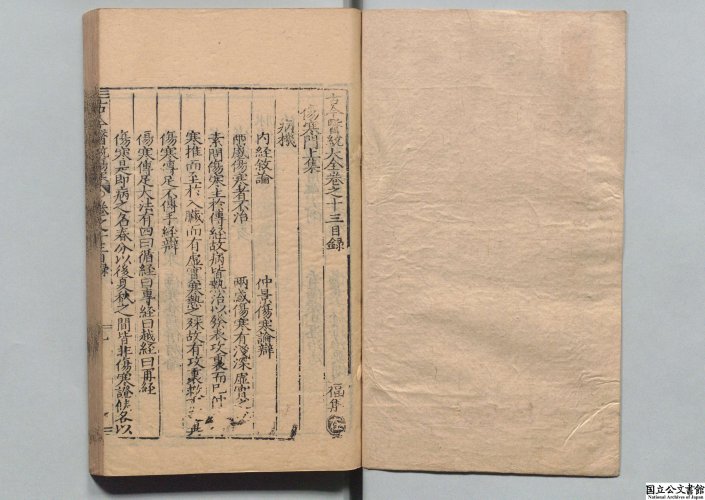 古今醫統大全卷之十三目録
傷寒門上集
病機
内經敘論
仲景傷寒論辯
兩感傷寒者不治
兩感傷寒有淺深虛實
素問傷寒主於傳經故病皆熱治以發表攻裏而已仲
寒推而至於入臟而有虛實寒熱之殊故有攻裏救
傷寒傳足不傳手經辯
傷寒傳足大法有四曰循經曰專經曰越經曰再經
傷寒是即病之名春分以後夏秋之間皆非傷寒證候各以
卷之十三目録
福集
国立公文書館
National Archives of Japan